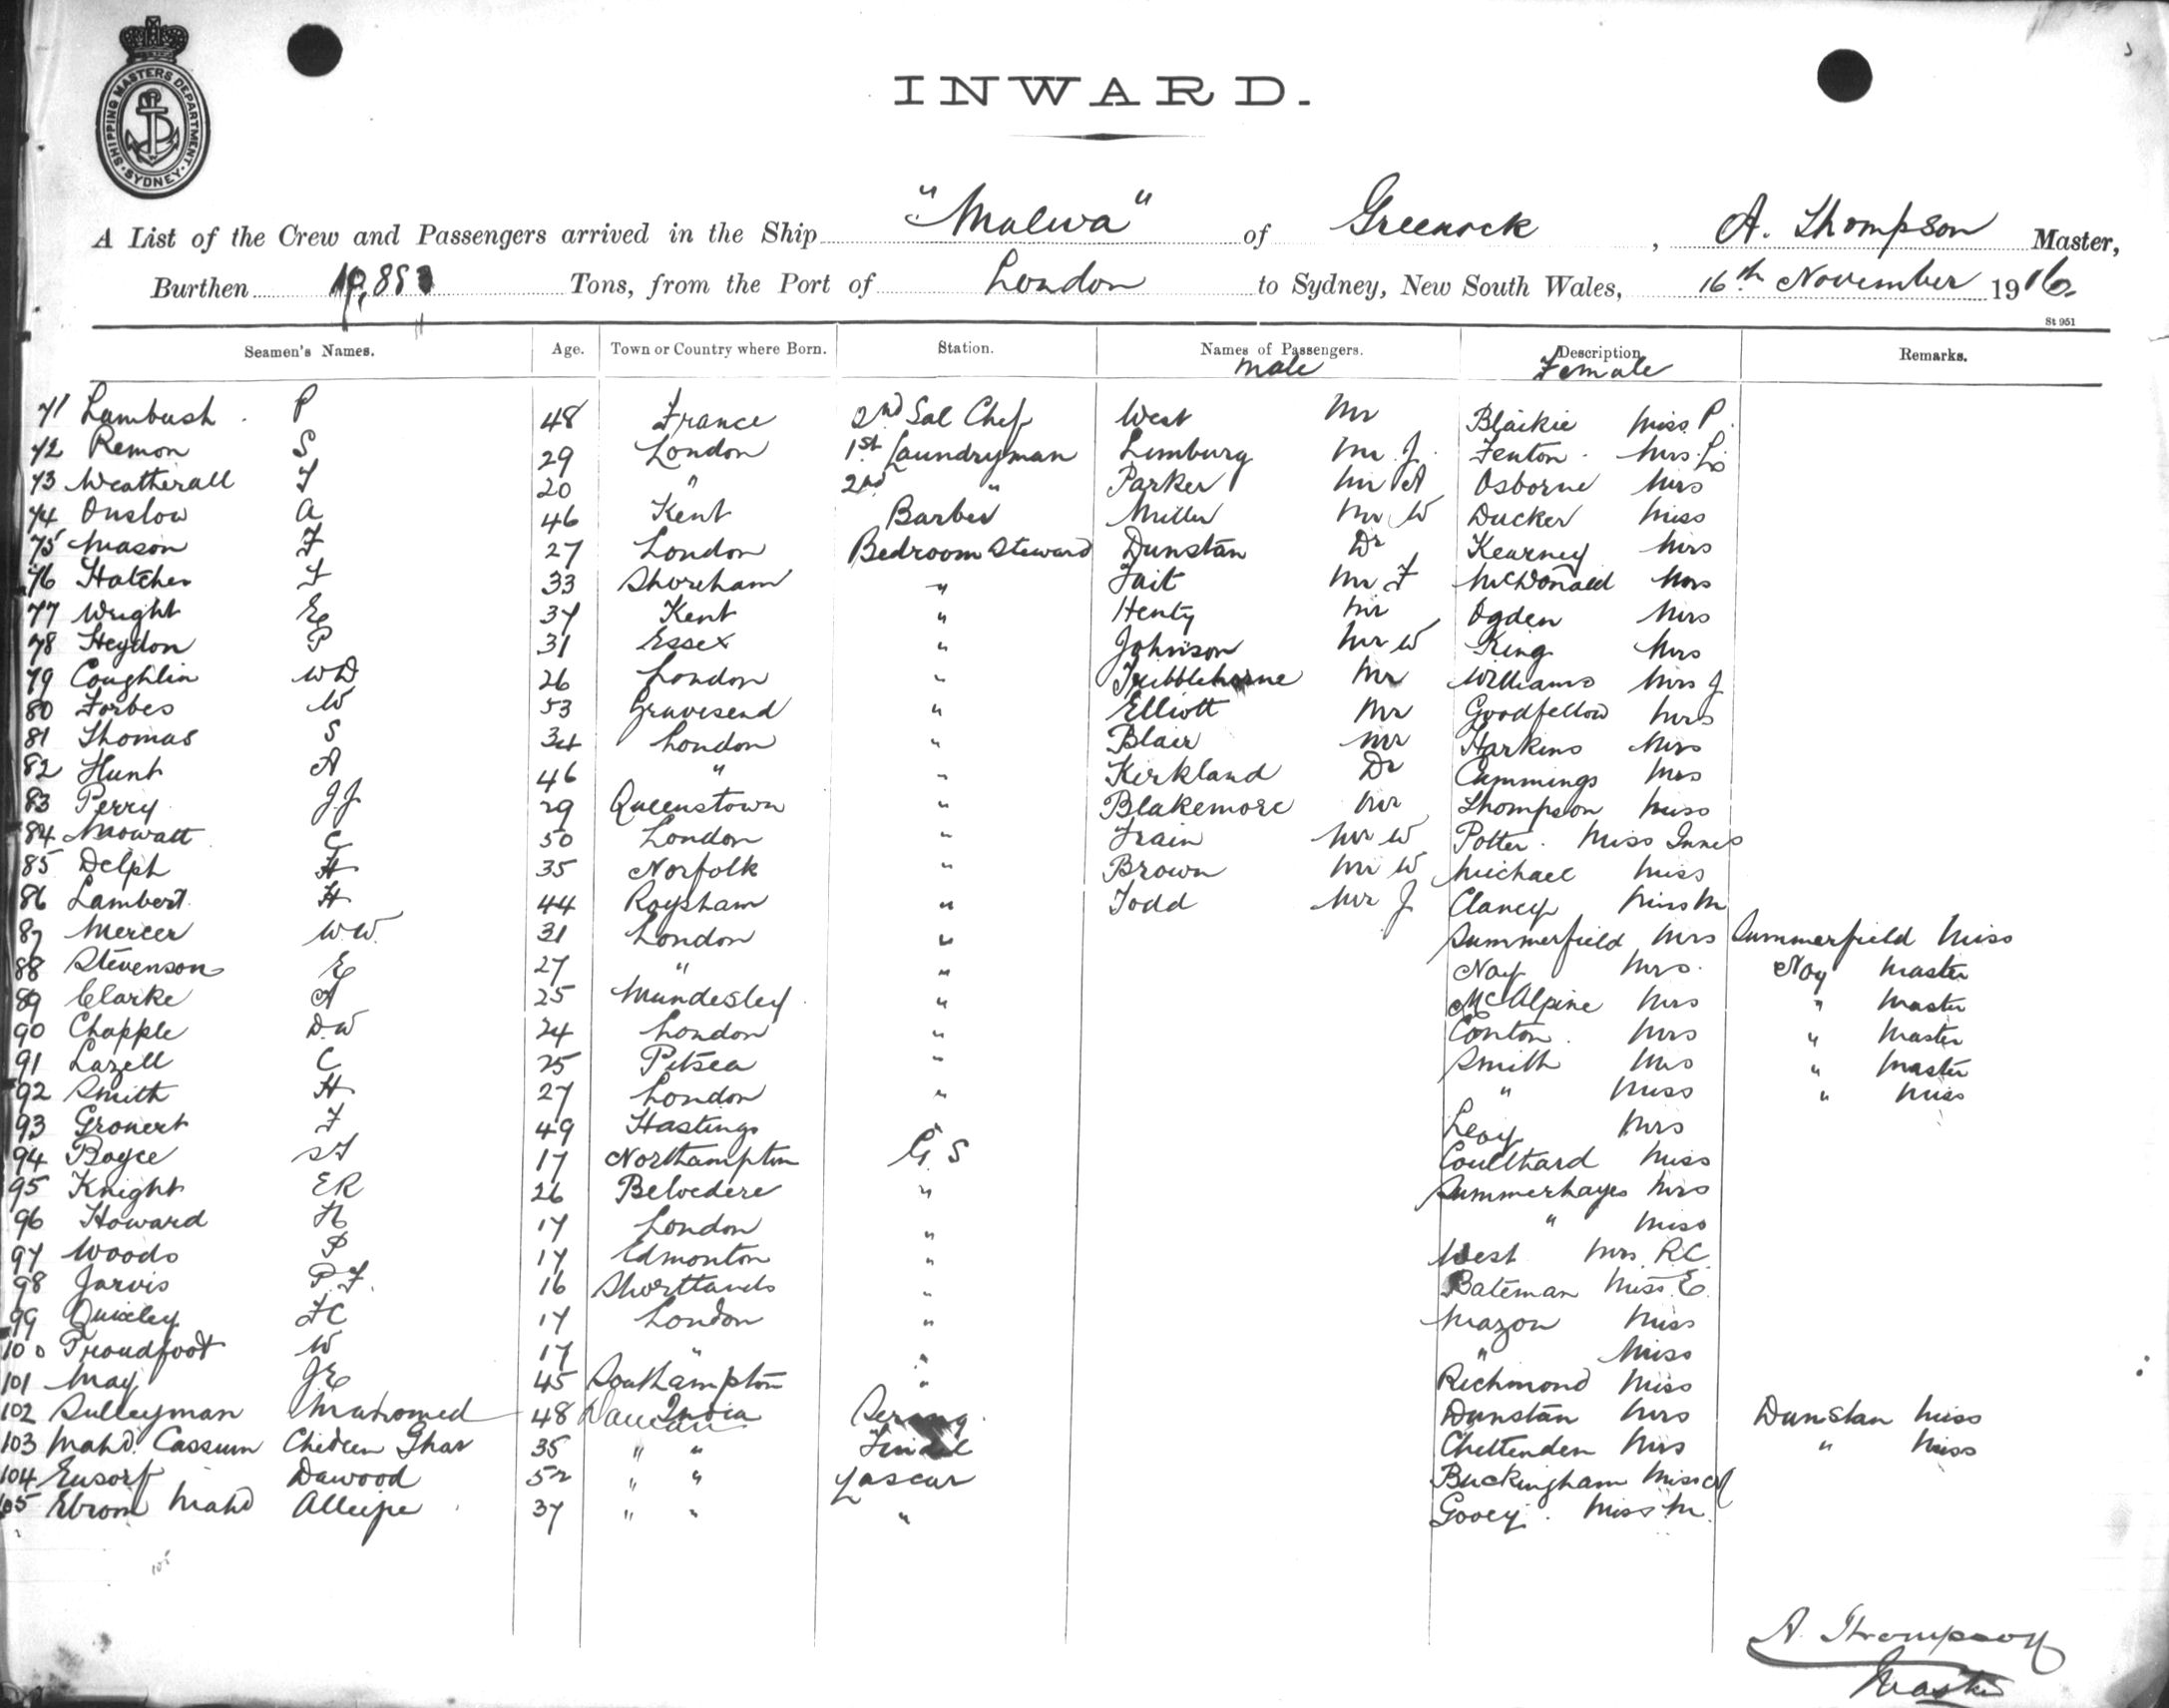 SHIPPING MASTERS DEPARTMENT
SYDNEY
INWARD.
A List of the Crew and Passengers arrived in the Ship "Malwa" of Greenock, A. Thompson Master,
Burthen Tons, from the Port of London to Sydney, New South Wales, 16th November 1916
St 951
Seamen's Names. Age. Town or Country where Born. Station. Names of Passengers. Description Remarks.
Male Female
71 Lambush P 48 France 2nd Sal Chef West Mr Blaikie Miss P.
72 Remon S 29 London 1st Laundryman Limburg Mr J. Fenton Mrs L.
73 Weatherall F 20 " 2nd " Parker Mr A Osborne Mrs
74 Onslow A 46 Kent Barber Miller Mr W Ducker Miss
75 Mason F 27 London Bedroom Steward Dunstan Dr Kearney Mrs
76 Hatcher F 33 Shoreham " Tait Mr F McDonald Mrs
77 Wright E 37 Kent " Henty Mr Ogden Mrs
78 Heydon P 31 Essex " Johnson Mr W King Mrs
79 Coughlin WD 26 London " Tribblehorne Mr Williams Mrs J
80 Forbes W 53 Gravesend " Elliott Mr Goodfellow Mrs
81 Thomas S 34 London " Blair Mr Harkins Mrs
82 Hunt A 46 " " Kirkland Dr Cummings Mrs
83 Perry JJ 29 Queenstown " Blakemore Mr Thompson Miss
84 Mowatt C 50 London " Train Mr W Potter Miss Innes
85 Delph H 35 Norfolk " Brown Mr W Michael Miss
86 Lambert H 44 Roysham " Todd Mr J Clancy Miss M
87 Mercer W.W. 31 London " Summerfield Mrs Summerfield Miss
88 Stevenson E 27 " " Noy Mrs Noy Master
89 Clarke A 25 Mundesley " McAlpine Mrs " Master
90 Chapple D.W 24 London " Conton Mrs " Master
91 Lazell C 25 Pitsea " Smith Mrs " Master
92 Smith H 27 London " " Miss " Miss
93 Gronert F 49 Hastings " Levy Mrs
94 Boyce 17 Northampton G.S Coulthard Miss
95 Knight ER 26 Belvedere " Summerhayes Mrs
96 Howard H 17 London " " Miss
97 Woods P 17 Edmonton " West Mrs R.C.
98 Jarvis P.F. 16 Shortlands " Bateman Miss E.
99 Quixley FC 17 London " Mazon Miss
100 Proudfoot W 17 " " " Miss
101 May JE 45 Southampton " Richmond Miss
102 Sulleyman Mahomed 48 Daman India Serang Dunstan Mrs Dunstan Miss
103 Mahd. Cassum Chideen Ghar 35 " " Tindel Chettenden Mrs " Miss
104 Eusorf Dawood 52 " " Lascar Buckingham Miss
105 Ebrom Mahd Alleije 37 " " " Gooey Miss M.
105
A. Thompson
Master